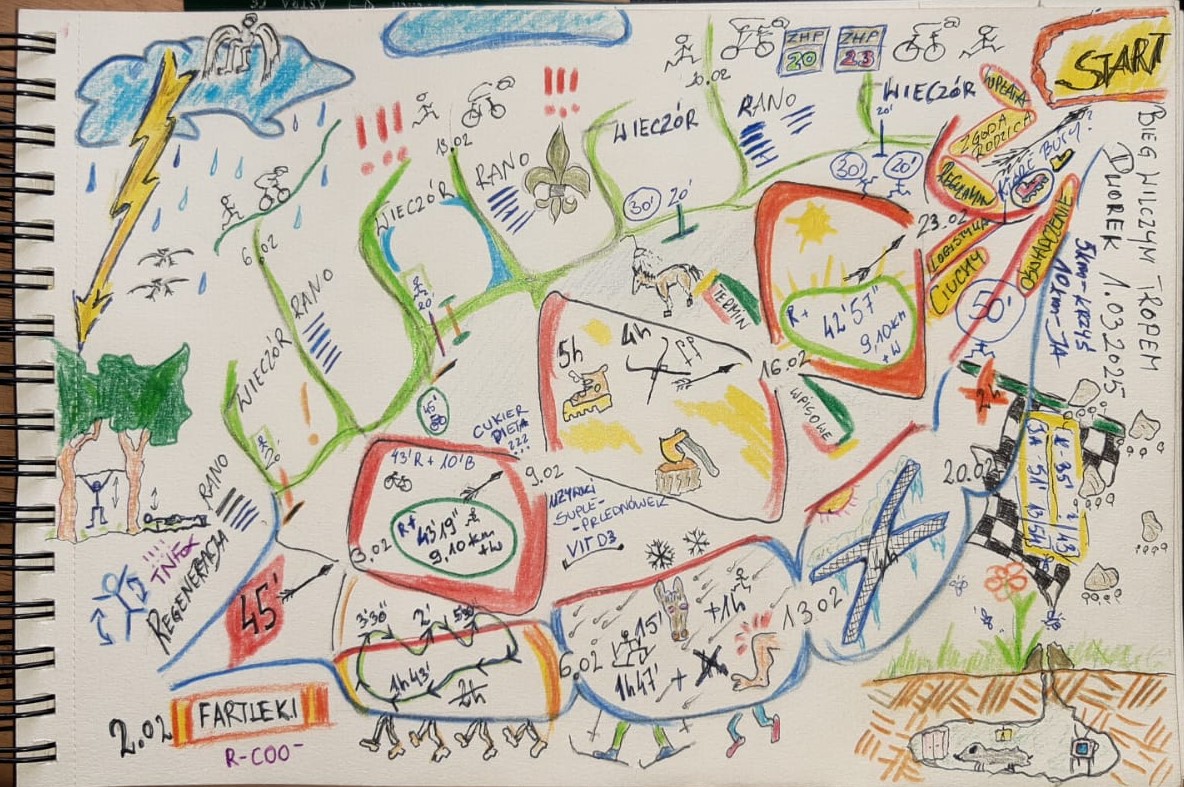 START
ZHP
20
ZHP
23
!!!
!!!
20.02
WIECZÓR
WPŁATA
ZGODA
RODZICA
REGULAMIN
KTÓRE BUTY?
LOGISTYKA
CIUCHY
DOŚWIADCZENIE
BIEG WILCZYM TROPEM
DWOREK 1.03.2025
5km - KRZYŚ
10km - JA
RANO
WIECZÓR
20'
30'
20'
23.02
50'
13.02
RANO
WIECZÓR
30'
20'
TERMIN
R+
42'57"
9,10km
+W
16.02
WPISOWE
6.02
RANO
WIECZÓR
20'
20'
45'
CUKIER
DIETA
???
5h
4h
2'
20.02
43'R + 10'B
R+
43'19"
9,10km
+W
9.02
3.02
SUPLE-
-PRZEDNÓWEK
VIT D3
RANO
!!!!
REGENERACJA
45'
3'30"
2'
1h43'
2h
6.02
15'
+1h
1h47' +
13.02
2.02
FARTLEKI
R-COO-